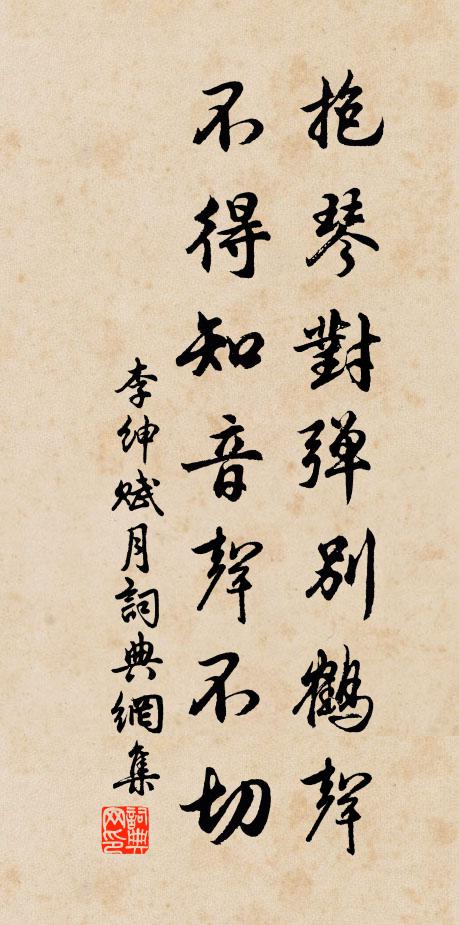 抱琴對彈別鶴聲
不得知音聲不切
李紳賦月詞典網集
詞典网印